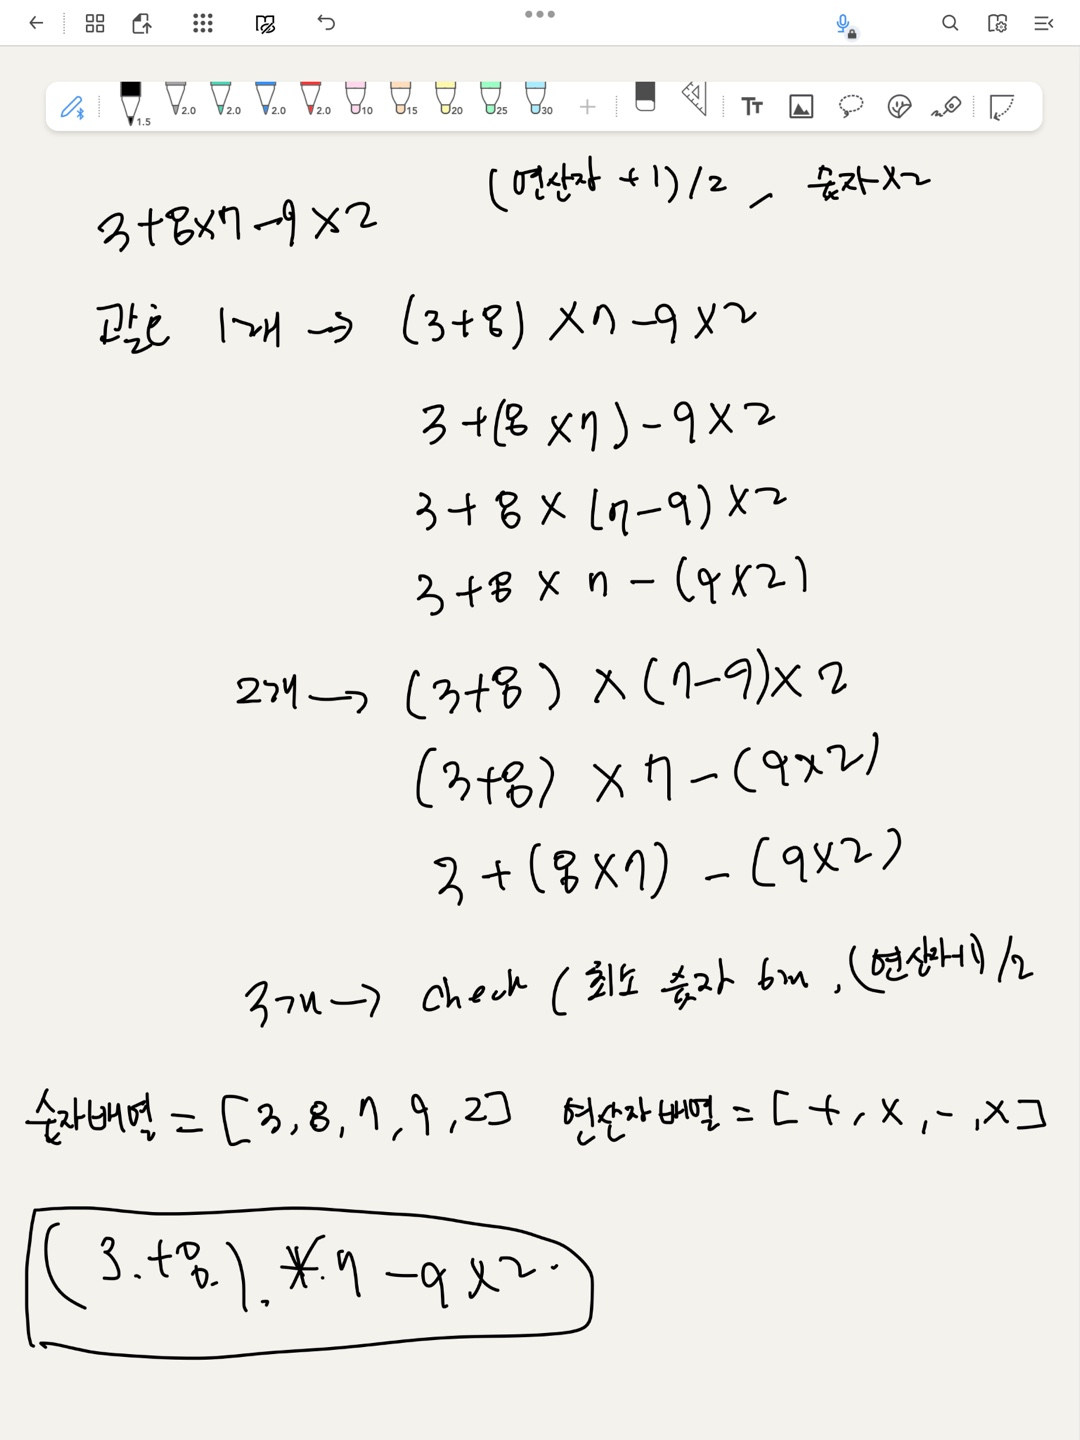 1.5 2.0 2.0 2.0 2.0 10 15 20 25 30 Tт
(연산자 +1)/2, 숫자×2
3+8×7-9×2
괄호 1개 → (3+8)×7-9×2
3+(8×7)-9×2
3+8×(7-9)×2
3+8×7-(9×2)
2개 → (3+8)×(7-9)×2
(3+8)×7-(9×2)
3+(8×7)-(9×2)
3개 → check (최소 숫자 6개, (연산자+1)/2
숫자배열 = [3,8,7,9,2] 연산자배열 = [+,×,-,×]
(3.+8.).*.7-9×2.